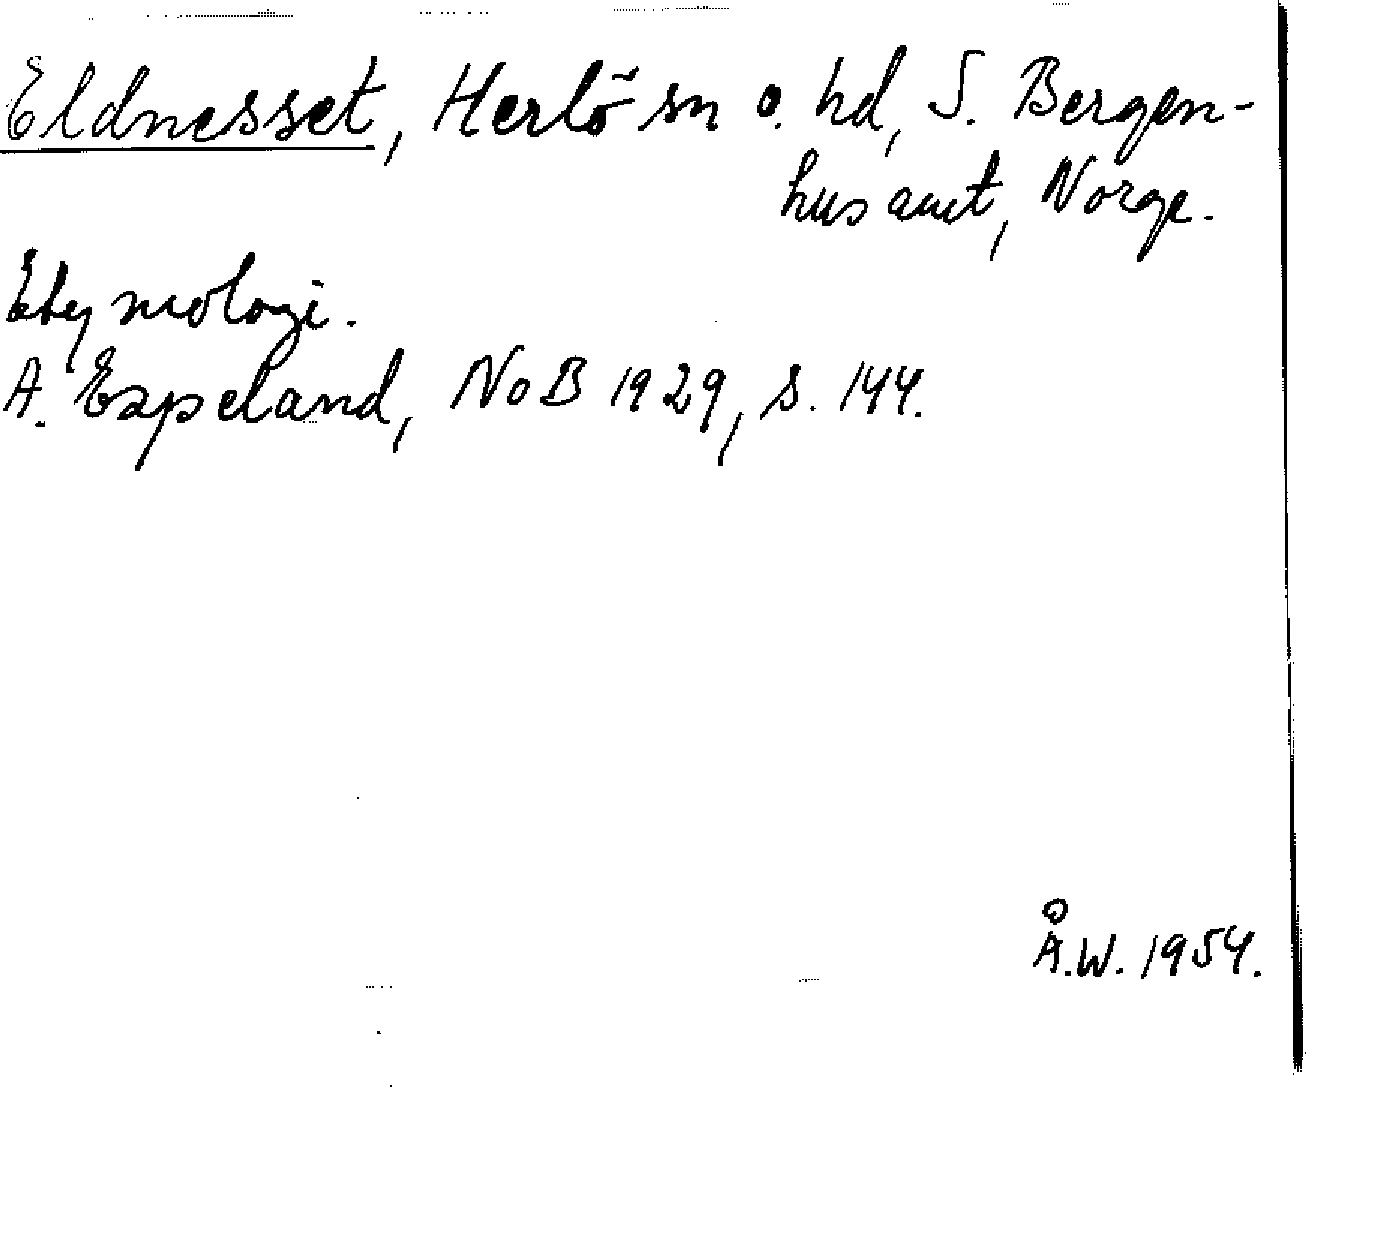 Eldnesset, Herlö sn o. hd, S. Bergen-
hus amt, Norge.
Etymologi.
A. Espeland, NoB 1929, s. 144.
Å.W. 1954.